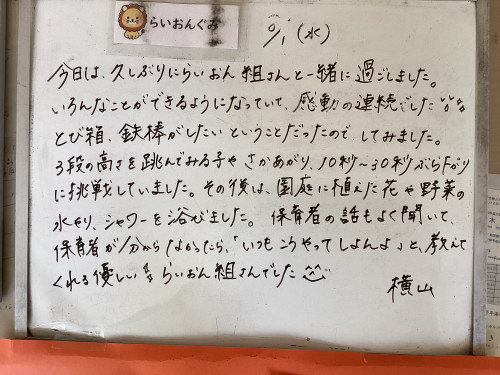 らいおんぐみ
9/1 (水)
今日は、久しぶりにらいおん組さんと一緒に過ごしました。
いろんなことができるようになっていて、感動の連続でした
とび箱、鉄棒がしたいということだったので、してみました。
3段の高さを跳んでみる子やさかあがり、10秒～30秒ぶら下がり
に挑戦していました。その後は、園庭に植えた花や野菜の
水やり、シャワーを浴びました。保育者の話もよく聞いて、
保育者が分からなかったら、「いつもこうやってしよんよ」と、教えて
くれる優しいらいおん組さんでした
横山